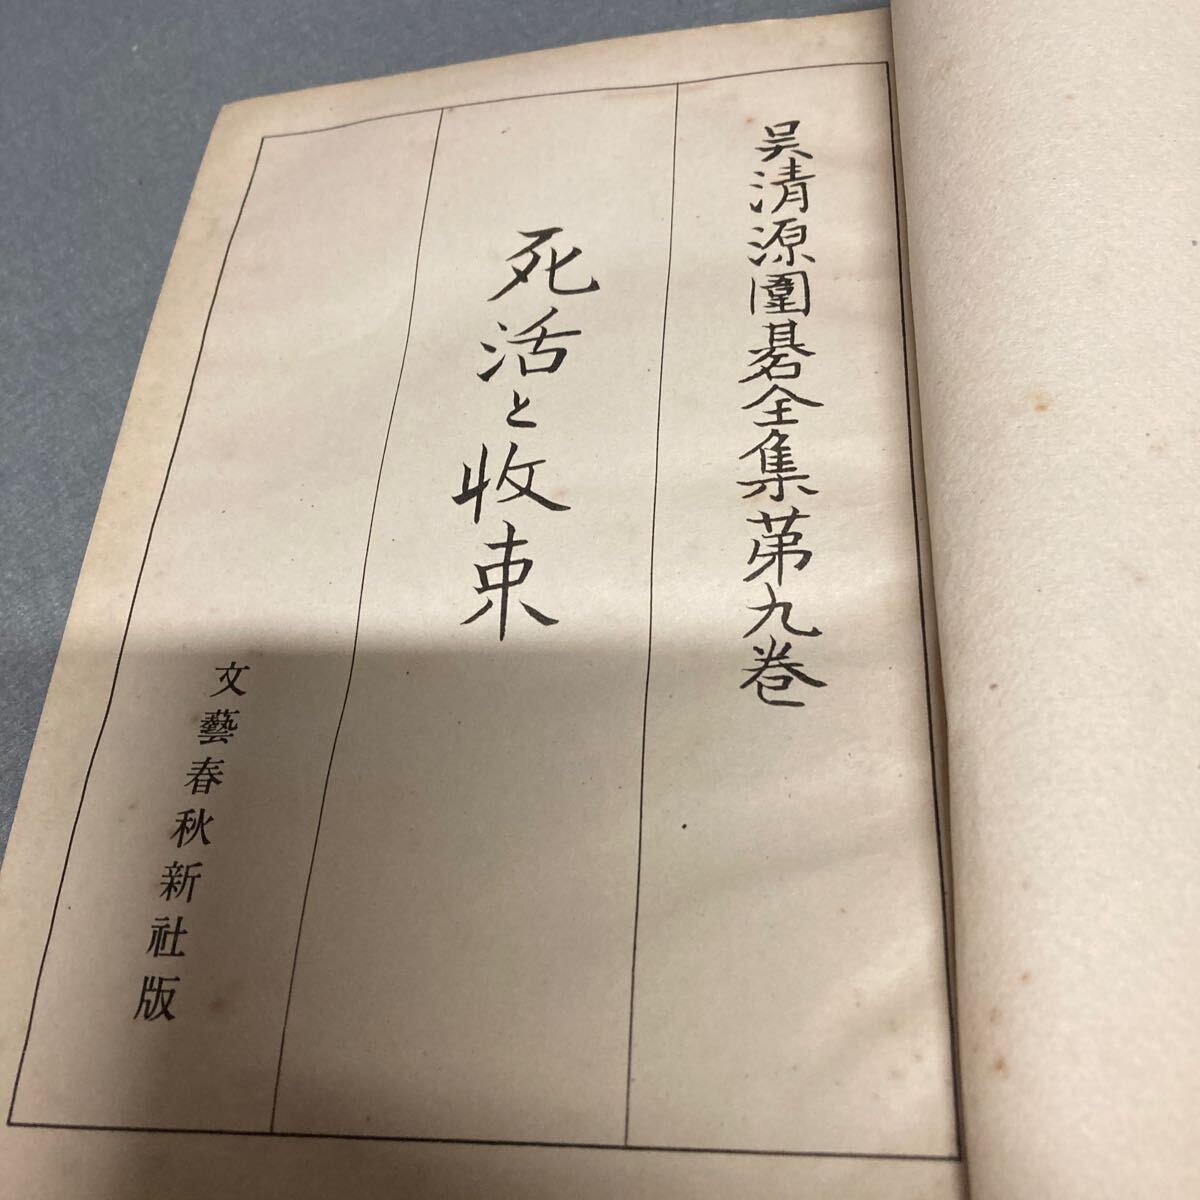 呉清源圍碁全集第九巻
死活と收束
文藝春秋新社版